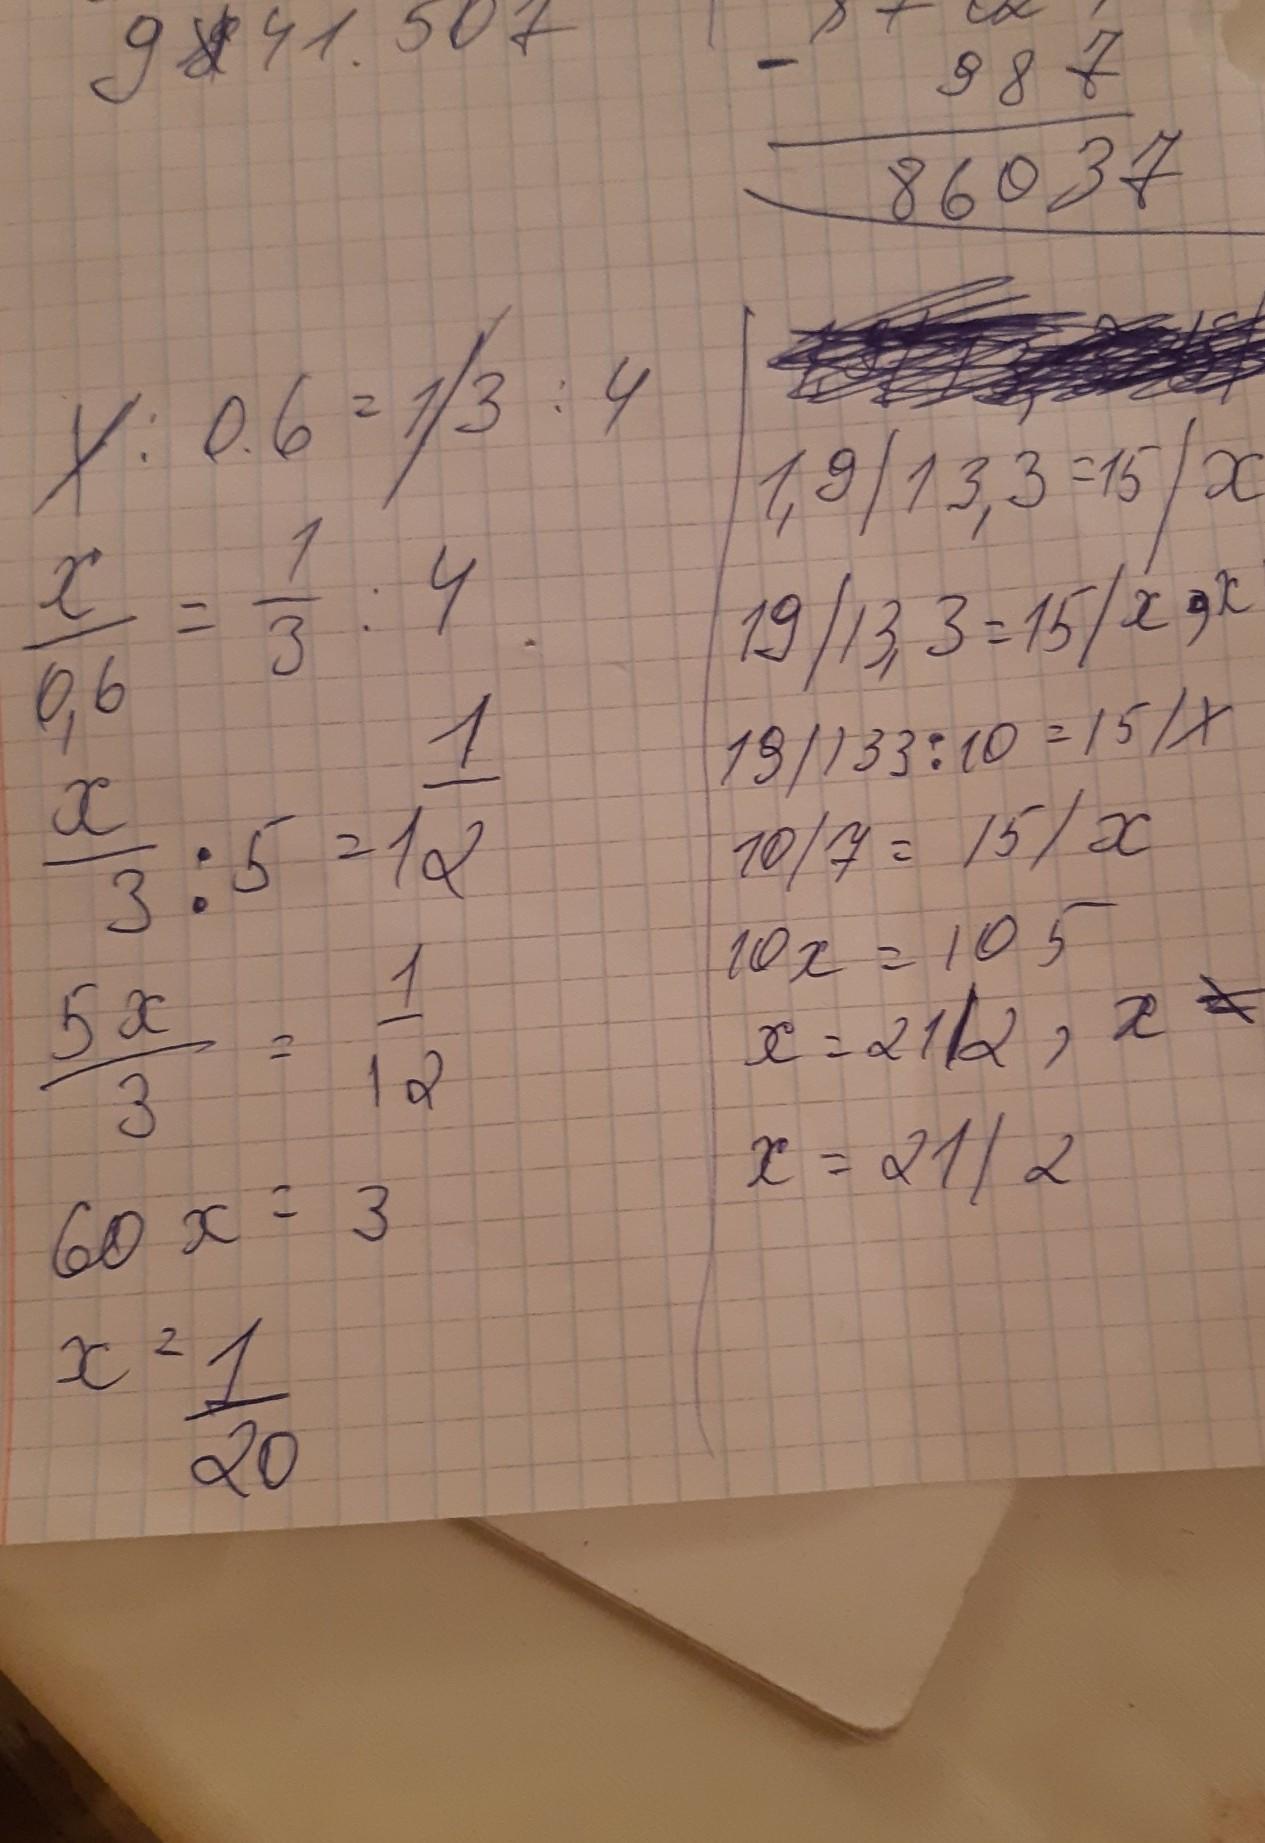 41.507
- 987
86037
x : 0.6 = 1/3 : 4
x/0,6 = 1/3 : 4
x/3 : 5 = 1/12
5x/3 = 1/12
60 x = 3
x = 1/20
1,9/13,3 = 15/x
19/13,3 = 15/x , x
19/133:10 = 15/x
10/7 = 15/x
10x = 105
x = 21/2 , x
x = 21/2